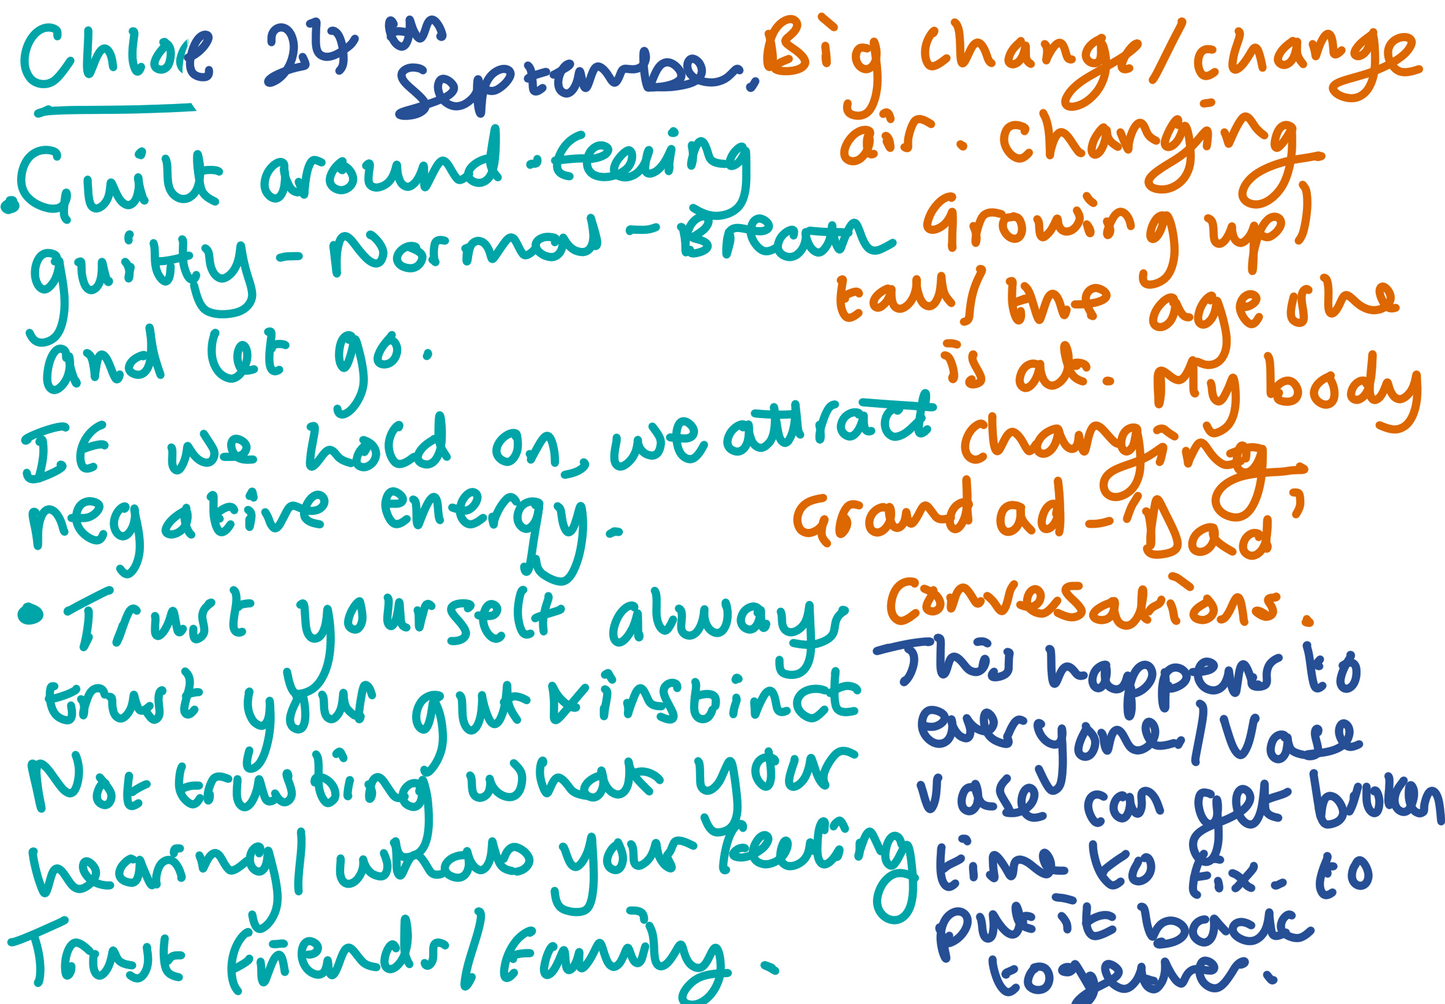 Chloe 24th September.
• Guilt around • feeling
guilty - Normal - Breath
and let go.
If we hold on, we attract
negative energy.
• Trust yourself always
trust your gut & instinct
Not trusting what your
hearing / whats your feeling
Trust friends / family.
Big change / change
air. changing
Growing up /
tall / the age she
is at. My body
changing
Grand ad - 'Dad'
Convesations.
This happens to
everyone / Vase
vase can get broken
time to fix - to
put it back
together.